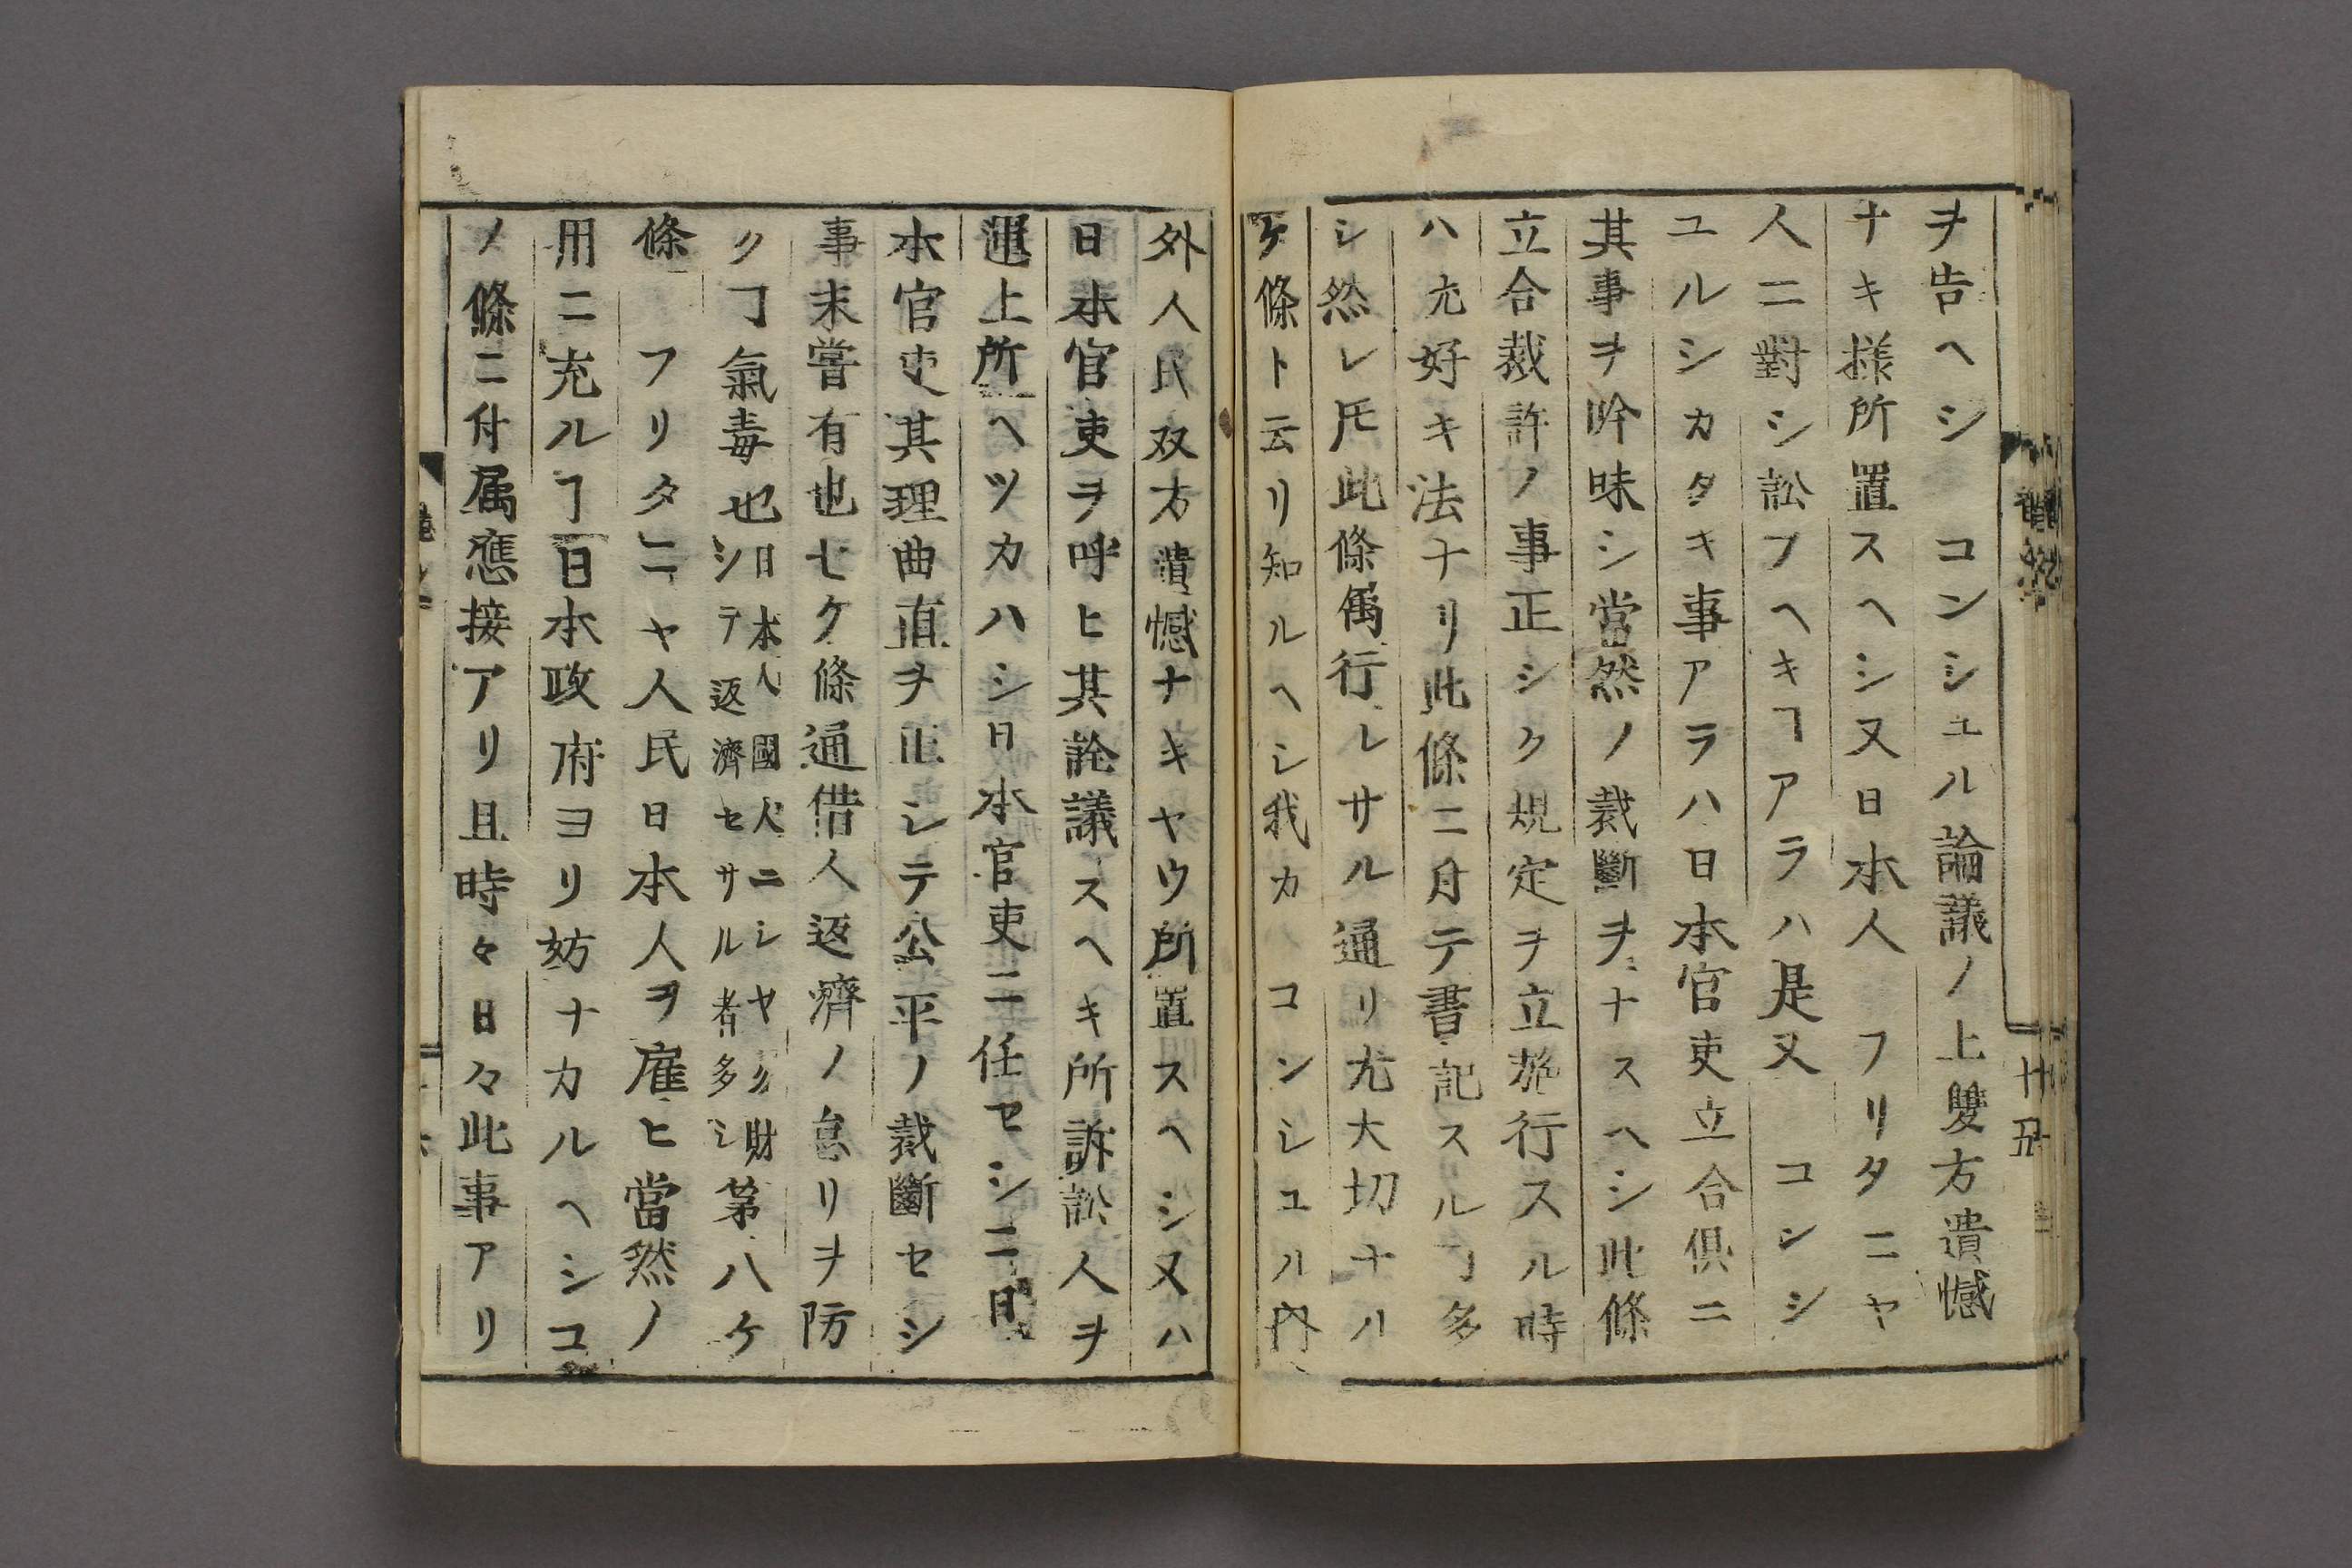 ヲ告ヘシ　コンシュル論議ノ上雙方遺憾
ナキ様所置スヘシ又日本人　フリタニヤ
人ニ對シ訟フヘキヿアラハ是又　コンシ
ユルシカタキ事アラハ日本官吏立合倶ニ
其事ヲ吟味シ當然ノ裁斷ヲナスヘシ此條
立合裁許ノ事正シク規定ヲ立施行スル時
ハ尤好キ法ナリ此條ニ付テ書記スルヿ多
シ然レ𪜈此條偶行レサル通リ尤大切ナル
ケ條ト云リ知ルヘシ我カ　コンシュル内
外人民双方遺憾ナキヤウ所置スヘシ又ハ
日本官吏ヲ呼ヒ其詮議スヘキ所訴訟人ヲ
運上所ヘツカハシ日本官吏ニ任セシニ日
本官吏其理曲直ヲ正シテ公平ノ裁斷セシ
事末嘗有也七ケ條通借人返濟ノ怠リヲ防
クヿ氣毒也日本人國人ニシヤク財シテ返濟セサル者多シ第八ケ
條　フリタニヤ人民日本人ヲ雇ヒ當然ノ
用ニ充ルヿ日本政府ヨリ妨ナカルヘシコ
ノ條ニ付属應接アリ且時々日々此事アリ
廿五